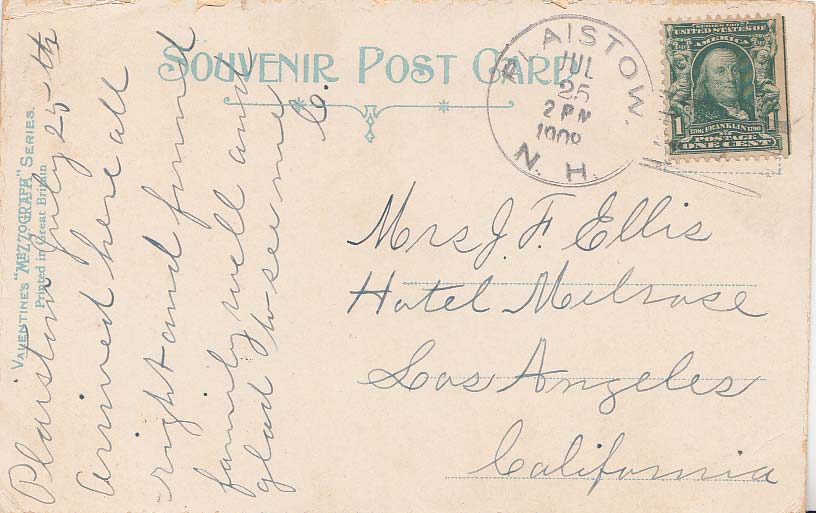 SOUVENIR POST CARD
PLAISTOW.
JUL
25
2 PM
1908
N. H.
SERIES 1902
UNITED STATES OF
AMERICA
1 1
1706 FRANKLIN 1790
POSTAGE
ONE CENT
VALENTINE'S "MEZZOGRAPH" SERIES.
Printed in Great Britain
Plaistow July 25-th
Arrived here all
right and found
family well and
glad to see me
C.
Mrs J. F. Ellis
Hotel Melrose
Los Angeles
California